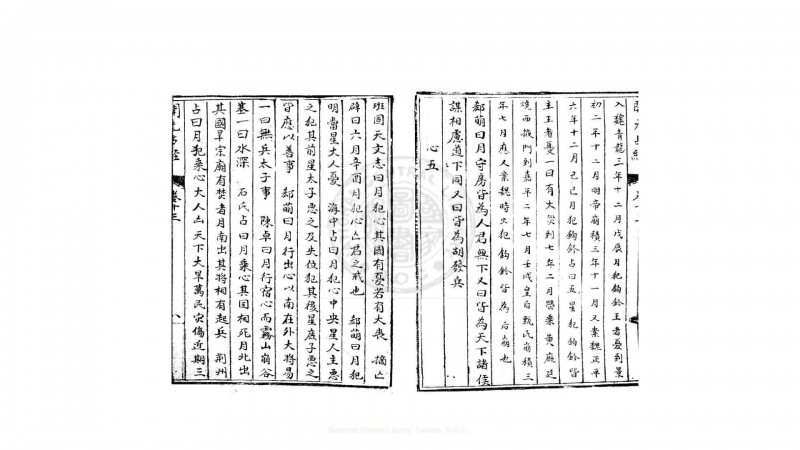 入魏青龍三年十二月戊辰月犯鉤鈐王者憂到景
初二年十二月明帝崩積三年十一月又案魏正平
六年十二月己巳月犯鉤鈐占曰五星犯鉤鈐皆
主王者憂一曰有大 到七年二月 乘黄廐延
燒西掖門到嘉平二年七月壬戌皇后甄氏崩積三
年七月應又案魏時火犯鉤鈐皆為后崩也
郄萌曰月守房皆為人君無下又曰皆為天下諸侯
謀相慮道下同又曰皆為胡發兵
心五
班固天文志曰月犯心其國有憂若有大喪 摘亡
辟曰六月辛酉月犯心亡君之戒也 郄萌曰月犯
明堂星大人憂 海中占曰月犯心中央星人主惡
之犯其前星太子惡之及失位犯其後星庶子惡之
皆應以善事 郄萌曰月行出心以南在外大將易
一曰無兵太子事 陳卓曰月行宿心而霧山崩谷
基一曰水深 石氏占曰月乘心其國相死月北出
其國旱宗廟有焚者月南出其將相有起兵 荆州
占曰月犯乘心大人凶天下大旱萬民灾傷近期三
開元占經
卷十三
八
National Central Library, Taiwan, R.O.C.